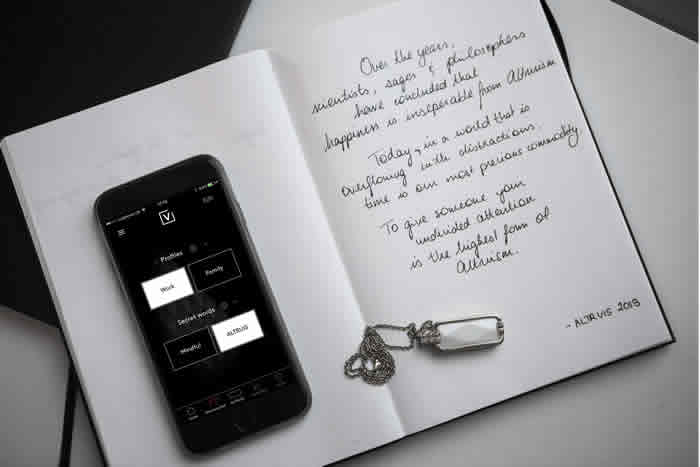 Over the years,
scientists, sages & philosophers
have concluded that
happiness is inseparable from Altruism
Today, in a world that is
overflowing with distractions
time is our most precious commodity
To give someone your
undivided attention
is the highest form of
Altruism.
- ALTRUIS 2018
V
Profiles
Work
Family
Secret words
Mindful
ALTRUIS